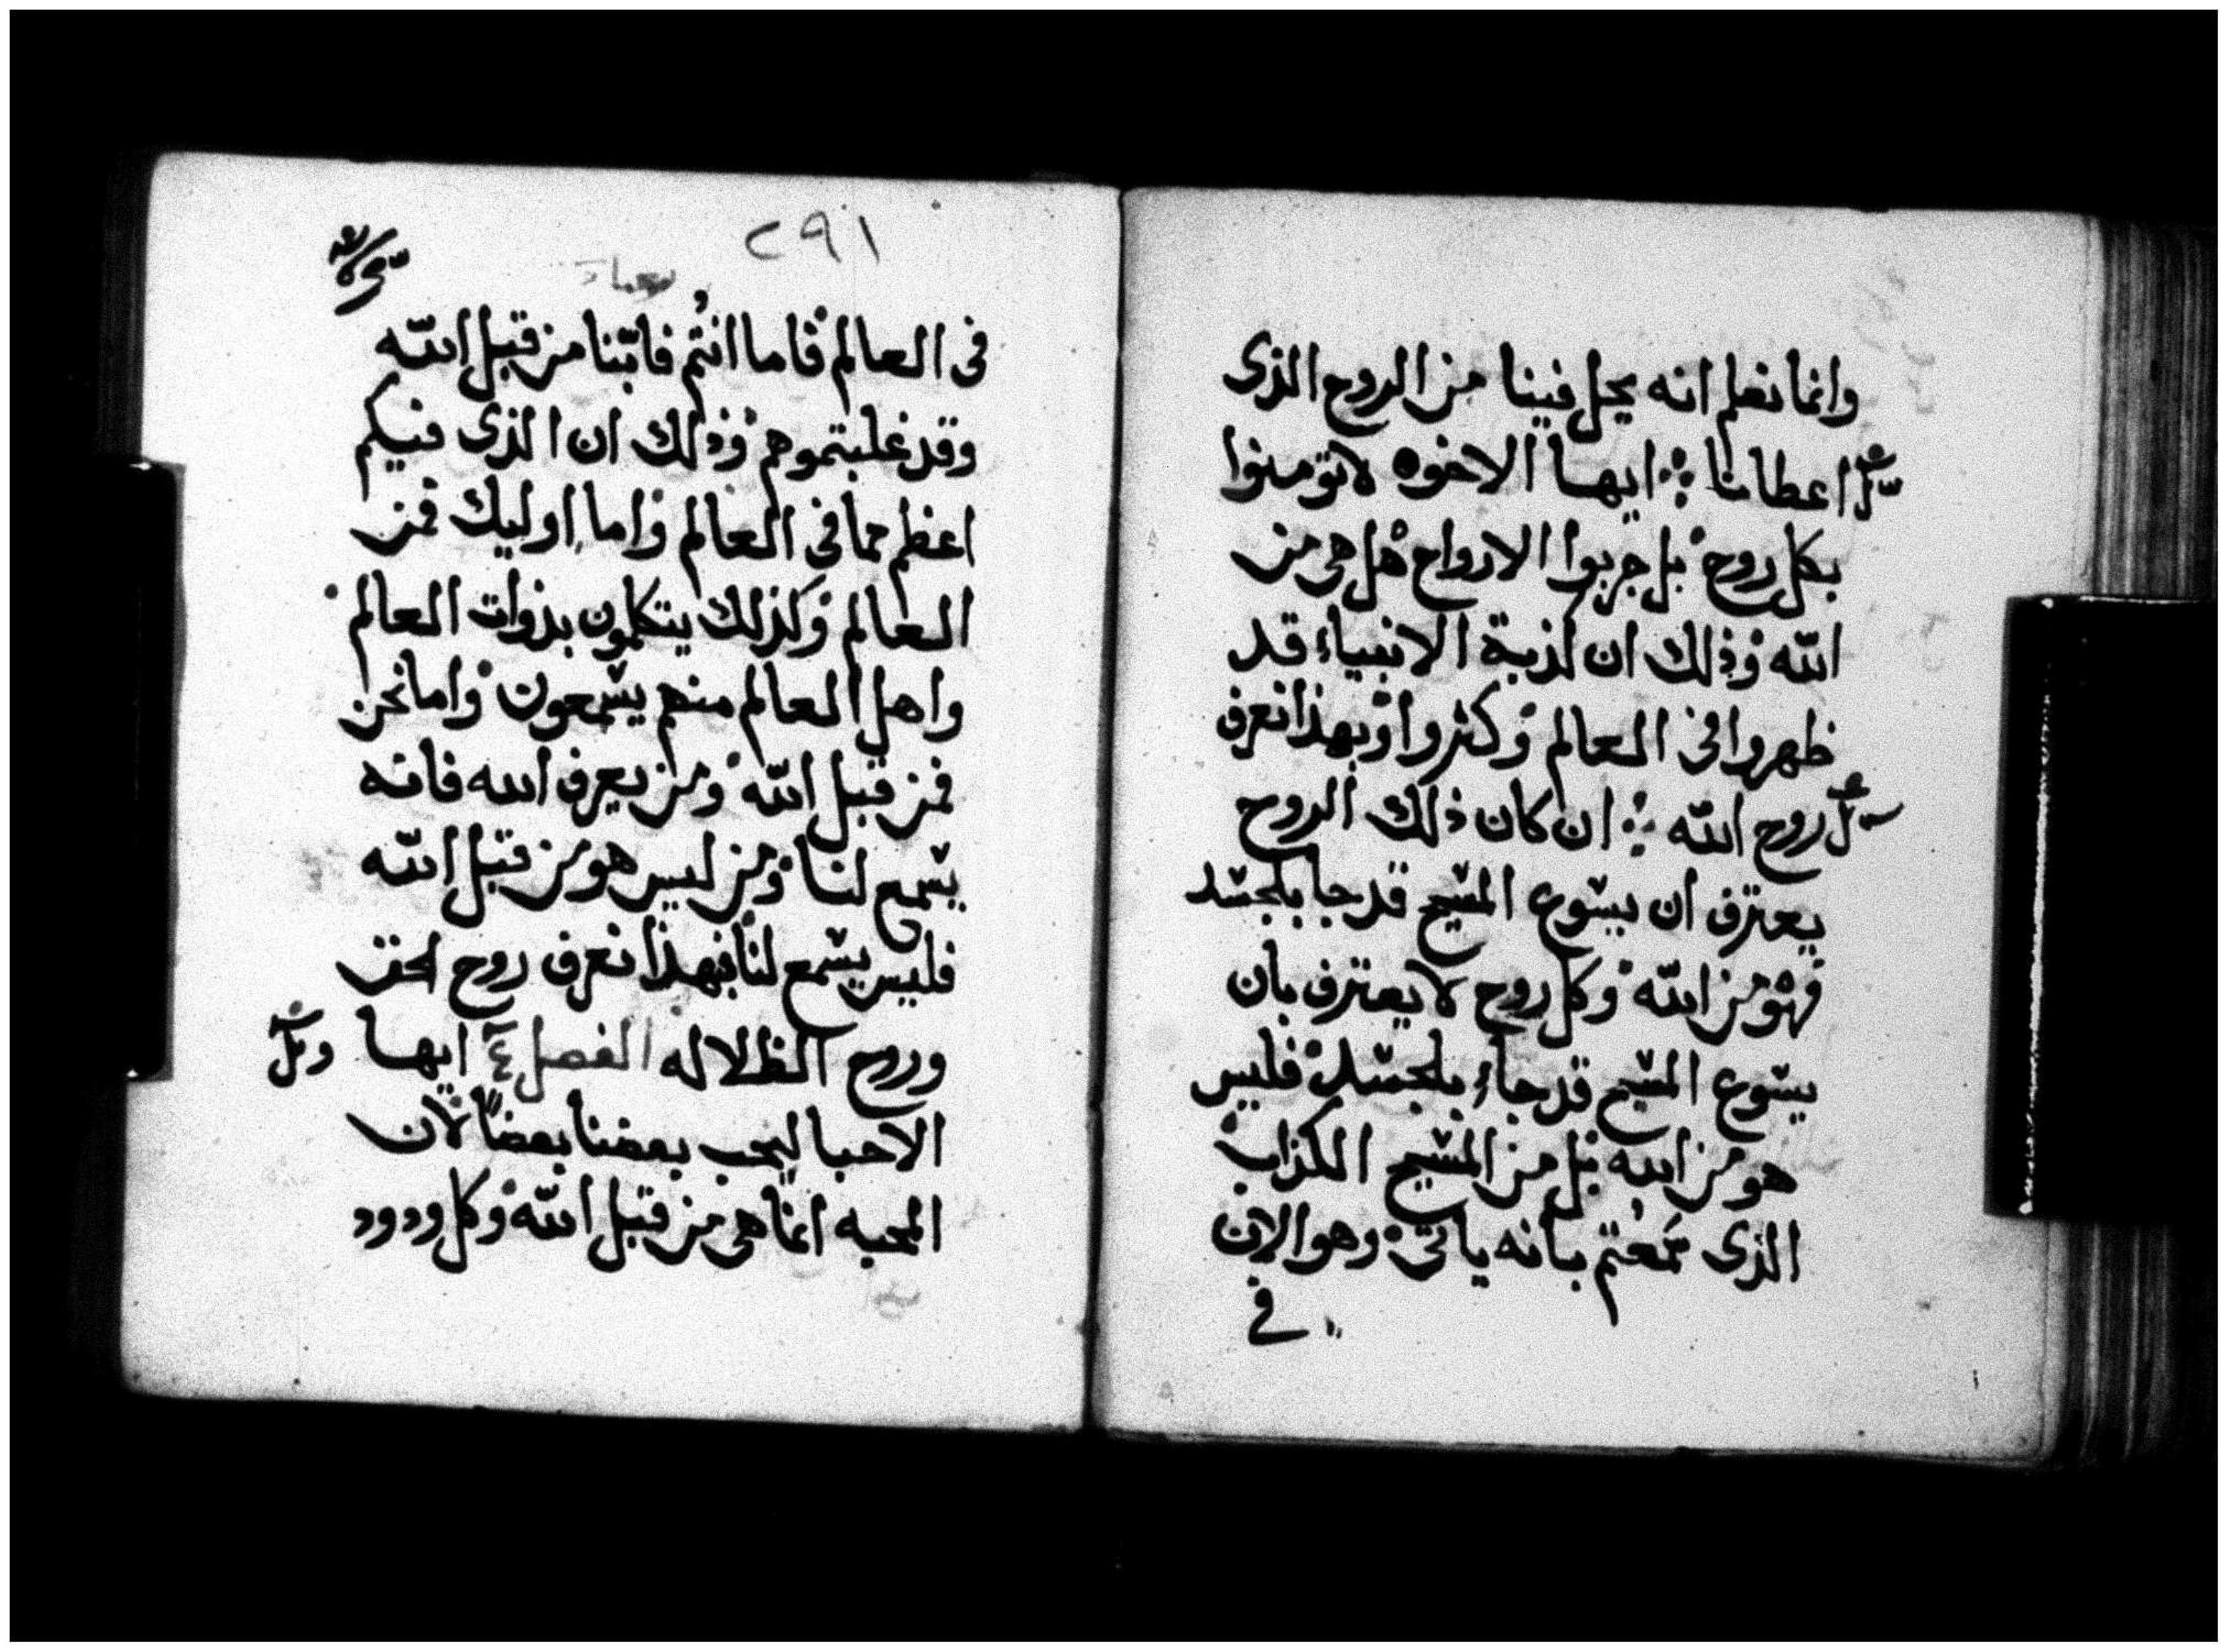 وانما نعلم انه يحل فينا من الروح الذى
اعطانا ⁘ ايها الاخوه لا تومنوا
بكل روح بل جربوا الارواح هل هى من
الله وذلك ان لذبة الانبياء قد
ظهروا فى العالم وكثروا وبهذا نعرف
روح الله ⁘ ان كان ذلك الروح
يعترف ان يسوع المسيح قد جا بلجسد
فهو من الله وكل روح لا يعترف بان
يسوع المسيح قد جاء بلجسد فليس
هو من الله بل من المسيح الكذاب
الذى سمعتم بانه ياتى وهو الان
فى
٢٩١
فى العالم فاما انتم فابنا من قبل الله
وقد غلبتموهم وذلك ان الذى فيكم
اعظم مما فى العالم واما اوليك فمن
العالم وكذلك يتكلمون بذوات العالم
واهل العالم منهم يسمعون واما نحن
فمن قبل الله ومن يعرف الله فانه
يسمع لنا ومن ليس هو من قبل الله
فليس يسمع لنا فبهذا نعرف روح الحق
وروح الظلاله الفصل ٤ ايها
الاحبا ليحب بعضنا بعضاً لان
المحبه انما هى من قبل الله وكل ودود